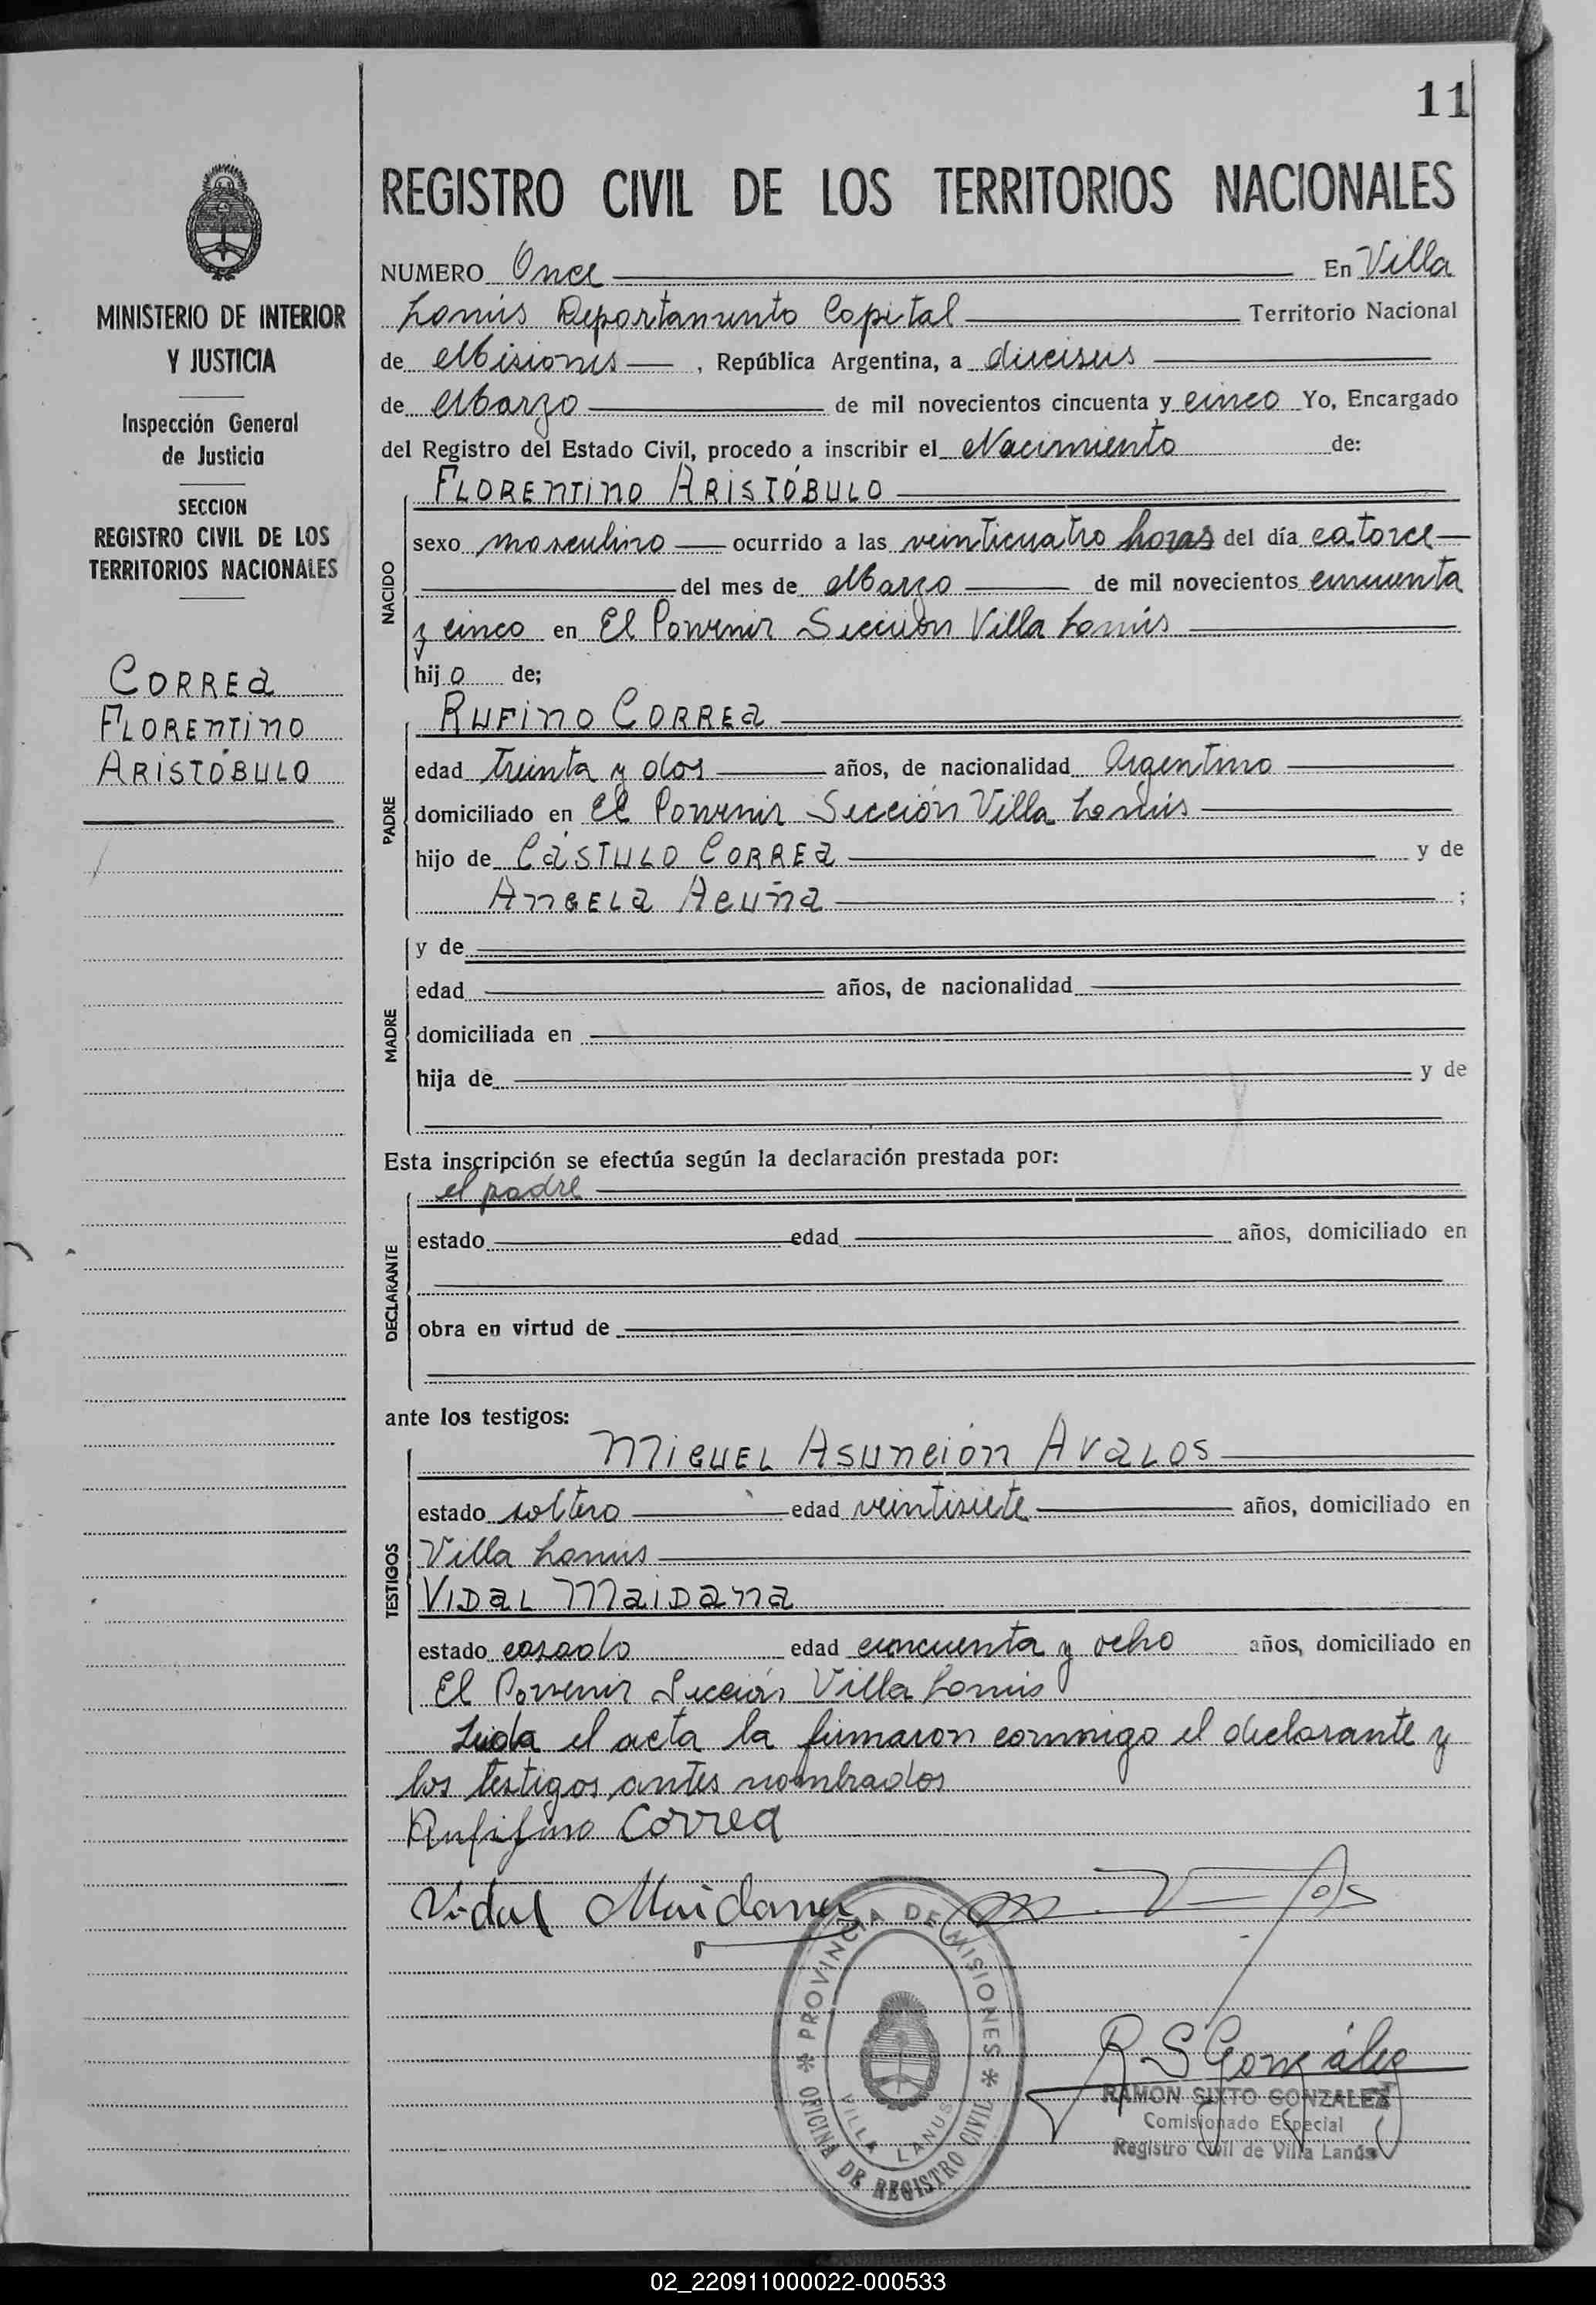 11
REGISTRO CIVIL DE LOS TERRITORIOS NACIONALES
MINISTERIO DE INTERIOR
Y JUSTICIA
Inspección General
de Justicia
SECCION
REGISTRO CIVIL DE LOS
TERRITORIOS NACIONALES
CORREA
FLORENTINO
ARISTÓBULO
NUMERO Once En Villa
Lanús Departamento Capital Territorio Nacional
de Misiones , República Argentina, a dieciseis
de Marzo de mil novecientos cincuenta y cinco Yo, Encargado
del Registro del Estado Civil, procedo a inscribir el Nacimiento de:
NACIDO
FLORENTINO ARISTÓBULO
sexo masculino ocurrido a las veinticuatro horas del día catorce
del mes de Marzo de mil novecientos cincuenta
y cinco en El Porvenir Sección Villa Lanús
hijo de;
PADRE
RUFINO CORREA
edad treinta y dos años, de nacionalidad Argentino
domiciliado en El Porvenir Sección Villa Lanús
hijo de CÁSTULO CORREA y de
ANGELA ACUÑA ;
MADRE
y de
edad años, de nacionalidad
domiciliada en
hija de y de
Esta inscripción se efectúa según la declaración prestada por:
DECLARANTE
el padre
estado edad años, domiciliado en
obra en virtud de
ante los testigos:
TESTIGOS
MIGUEL ASUNCIÓN AVALOS
estado soltero edad veintisiete años, domiciliado en
Villa Lanús
VIDAL MAIDANA
estado casado edad cincuenta y ocho años, domiciliado en
El Porvenir Sección Villa Lanús
Leída el acta la firmaron conmigo el declarante y
los testigos antes nombrados
Correa
Vidal Maidana
PROVINCIA DE MISIONES
OFICINA DE REGISTRO CIVIL
VILLA LANUS
R S González
RAMON SIXTO GONZALEZ
Comisionado Especial
Registro Civil de Villa Lanús
02_220911000022-000533